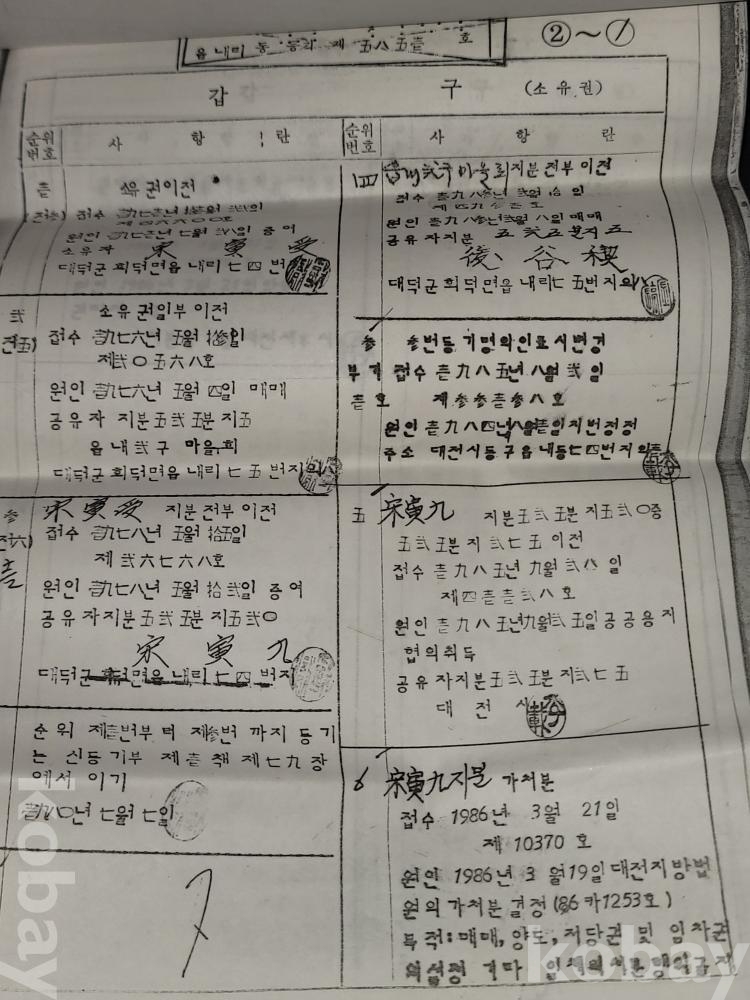 읍내리 동 등기 제 五八五壹 호
②~1
갑 구 (소유권)
순위번호 사 항 란
壹 소유권이전
소유자 宋寅受
대덕군 회덕면읍 내리 七四 번지
貳 소유권일부 이전
접수 壹九七六년 五월 拾일
제貳〇五六八호
원인 壹九七六년 五월 四일 매매
공유자 지분五貳五분지五
읍내貳구 마을회
대덕군 회덕면읍 내리 七五 번지의八
參 宋寅受 지분전부 이전
접수 壹九七八년 五월 拾五일
제 貳六七六八호
원인 壹九七八년 五월 拾貳일 증여
공유자지분五貳五분지五貳〇
宋寅九
대덕군 회덕면읍 내리 七四 번지
순위 제壹번부터 제參번 까지 등기
는 신등기부 제壹책 제七九장
에서 이기
壹九八〇년 七월 七일
순위번호 사 항 란
四 읍내貳구마을회지분전부이전
공유자지분 五貳五분지五
後谷稧
대덕군 회덕면읍 내리七五번지의八
參 參번등기명의인표시변경
부기 접수 壹九八五년 八월 貳일
壹호 제參參壹參八호
주소 대전시동구읍내동七四번지의
五 宋寅九 지분五貳五분지五貳〇중
五貳五분지貳七五이전
접수 壹九八五년 九월 貳八일
제四壹壹貳八호
원인 壹九八五년九월貳五일공공용지
협의취득
공유자지분五貳五분지貳七五
대전시
6 宋寅九지분 가처분
접수 1986년 3월 21일
제 10370 호
원인 1986년 3월19일대전지방법
원의가처분결정(86카1253호)
목적:매매,양도,저당권 및 임차권
의설정 기타 일체의처분행위금지
kobay
kobay